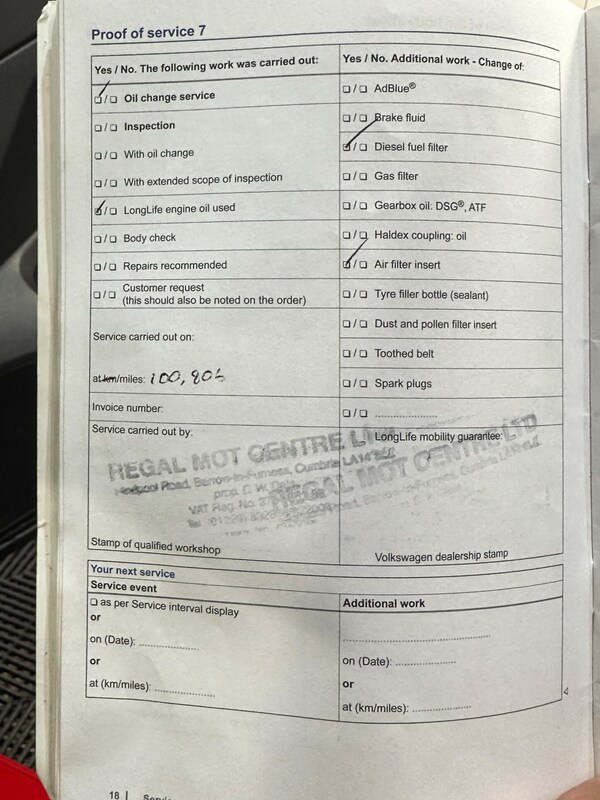 Proof of service 7
Yes / No. The following work was carried out:
❏ / ❏ Oil change service
❏ / ❏ Inspection
❏ / ❏ With oil change
❏ / ❏ With extended scope of inspection
❏ / ❏ LongLife engine oil used
❏ / ❏ Body check
❏ / ❏ Repairs recommended
❏ / ❏ Customer request
(this should also be noted on the order)
Service carried out on:
at km/miles: 100,80
Invoice number:
Service carried out by:
REGAL MOT CENTRE
Road, Barrow-in-Furness, Cumbria LA14
prop. C. W.
VAT Reg. No.
Stamp of qualified workshop
Yes / No. Additional work - Change of:
❏ / ❏ AdBlue®
❏ / ❏ Brake fluid
❏ / ❏ Diesel fuel filter
❏ / ❏ Gas filter
❏ / ❏ Gearbox oil: DSG®, ATF
❏ / ❏ Haldex coupling: oil
❏ / ❏ Air filter insert
❏ / ❏ Tyre filler bottle (sealant)
❏ / ❏ Dust and pollen filter insert
❏ / ❏ Toothed belt
❏ / ❏ Spark plugs
❏ / ❏ ....................
LongLife mobility guarantee:
REGAL MOT CENTRE LTD
Volkswagen dealership stamp
Your next service
Service event
❏ as per Service interval display
or
on (Date): ....................
or
at (km/miles): ....................
Additional work
..................................................
on (Date): ....................
or
at (km/miles): ....................
18